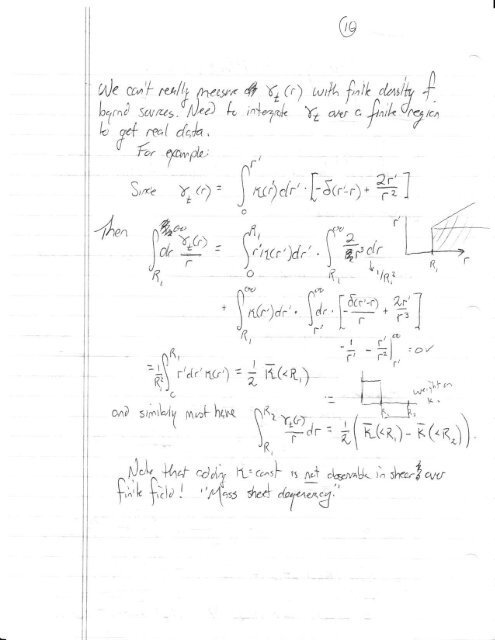 (10)
We can't really measure γ_t (r) with finite density of
bgrnd sources. Need to integrate γ_t over a finite region
to get real data.
For example:
Since γ_t (r) = ∫_0^{r'} κ(r') dr' · [-δ(r'-r) + 2r'/r²]
Then ∫_{R_1}^∞ dr γ_t(r)/r = ∫_0^{R_1} r'κ(r')dr' · ∫_{R_1}^∞ 2/r³ dr
↳ 1/R_1²
r'
R_1 r
+ ∫_{R_1}^∞ κ(r')dr' · ∫_{r'}^∞ dr · [-δ(r'-r)/r + 2r'/r³]
-1/r' - r'/r² |_{r'}^∞ = 0 ✓
= 1/R_1² ∫_0^{R_1} r'dr' κ(r') = 1/2 κ̄(<R_1)
:= weight on
κ.
R_1 R_2
and similarly must have ∫_{R_1}^{R_2} γ_t(r)/r dr = 1/2 ( κ̄(<R_1) - κ̄(<R_2) ).
Note that adding κ=const is not observable in shear over
finite field! "Mass sheet degeneracy."